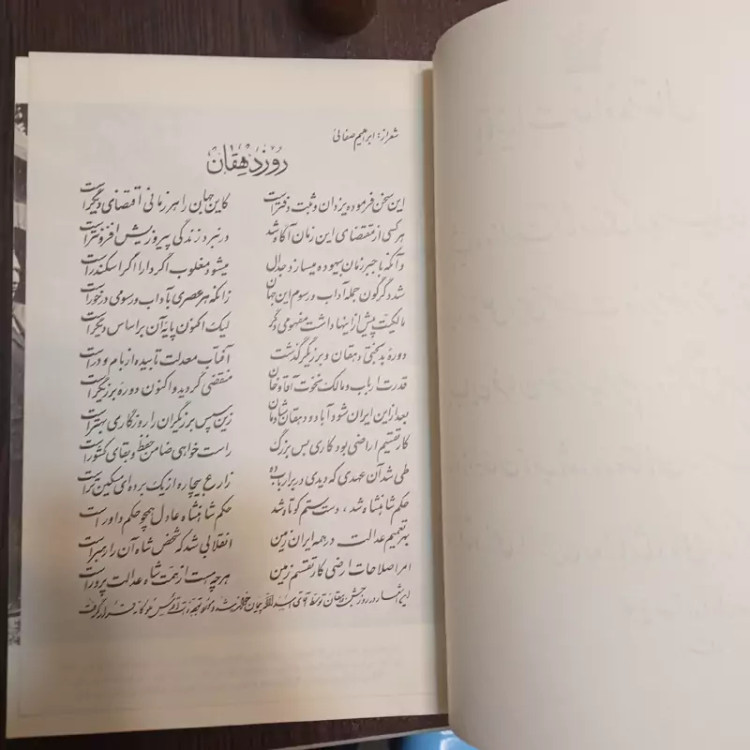 شعر از: ابراهیم صفائی
روز دهقان
این سخن فرموده یزدان و ثبت دفتر است کاین جهان را هر زمانی اقتضای دیگر است
هر کسی از مقتضای این زمان آگاه شد در نبرد زندگی پیروزیش افزونتر است
وآنکه با جبر زمان بیهوده میسازد جدال میشود مغلوب اگر دارا اگر اسکندر است
شد دگرگون جمله آداب و رسوم این جهان زانکه هر عصری بآداب و رسومی درخور است
مالکیت پیش از اینها داشت مفهومی دگر لیک اکنون پایه آن بر اساس دیگر است
دوره بدبختی دهقان و برزیگر گذشت آفتاب معدلت تابیده از بام و در است
قدرت ارباب و مالک نخوت آقا و خان منقضی گردید و اکنون دوره برزیگر است
بعد از این ایران شود آباد و دهقان شادمان زین سپس برزیگران را روزگاری بهتر است
کار تقسیم اراضی بود کاری بس بزرگ راست خواهی ضامن حفظ و بقای کشور است
طی شد آن عهدی که دیدی در بر ارباب ده زارع بیچاره از یک برده ای مسکین تر است
حکم شاهنشاه شد ، دست ستم کوتاه شد حکم شاهنشاه عادل همچو حکم داور است
بهر تعمیم عدالت در همه ایران زمین انقلابی شد که شخص شاه آن را رهبر است
امر اصلاحات ارضی کار تقسیم زمین هر چه هست از همت شاه عدالت پرور است
این اشعار در روز جشن دهقان توسط آقای قرار گرفت